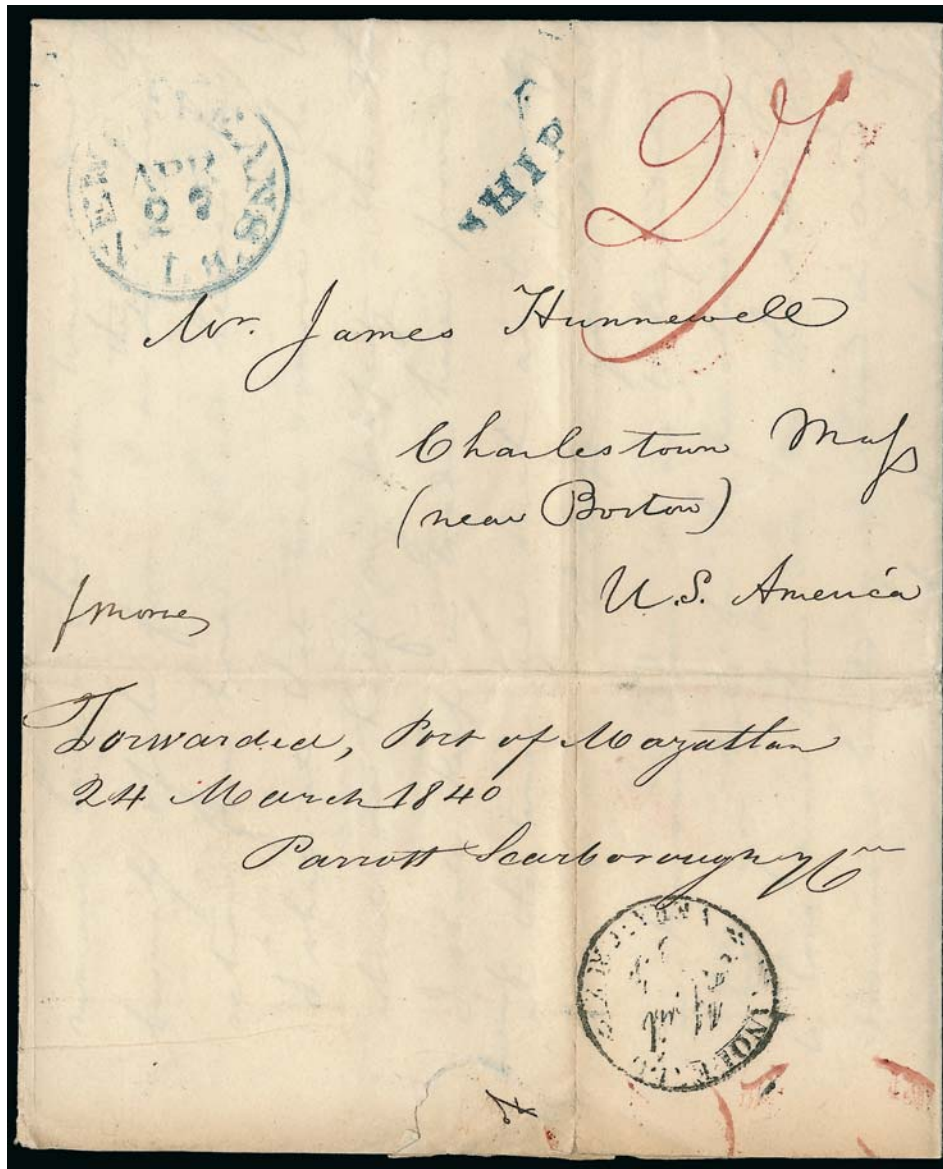 NEW ORLEANS
APR
SHIP
27
Mr. James Hunnewell
Charlestown Mass
(near Boston)
U.S. America
Forwarded, Port of Mazatlan
24 March 1840
Parrott Scarborough & Co